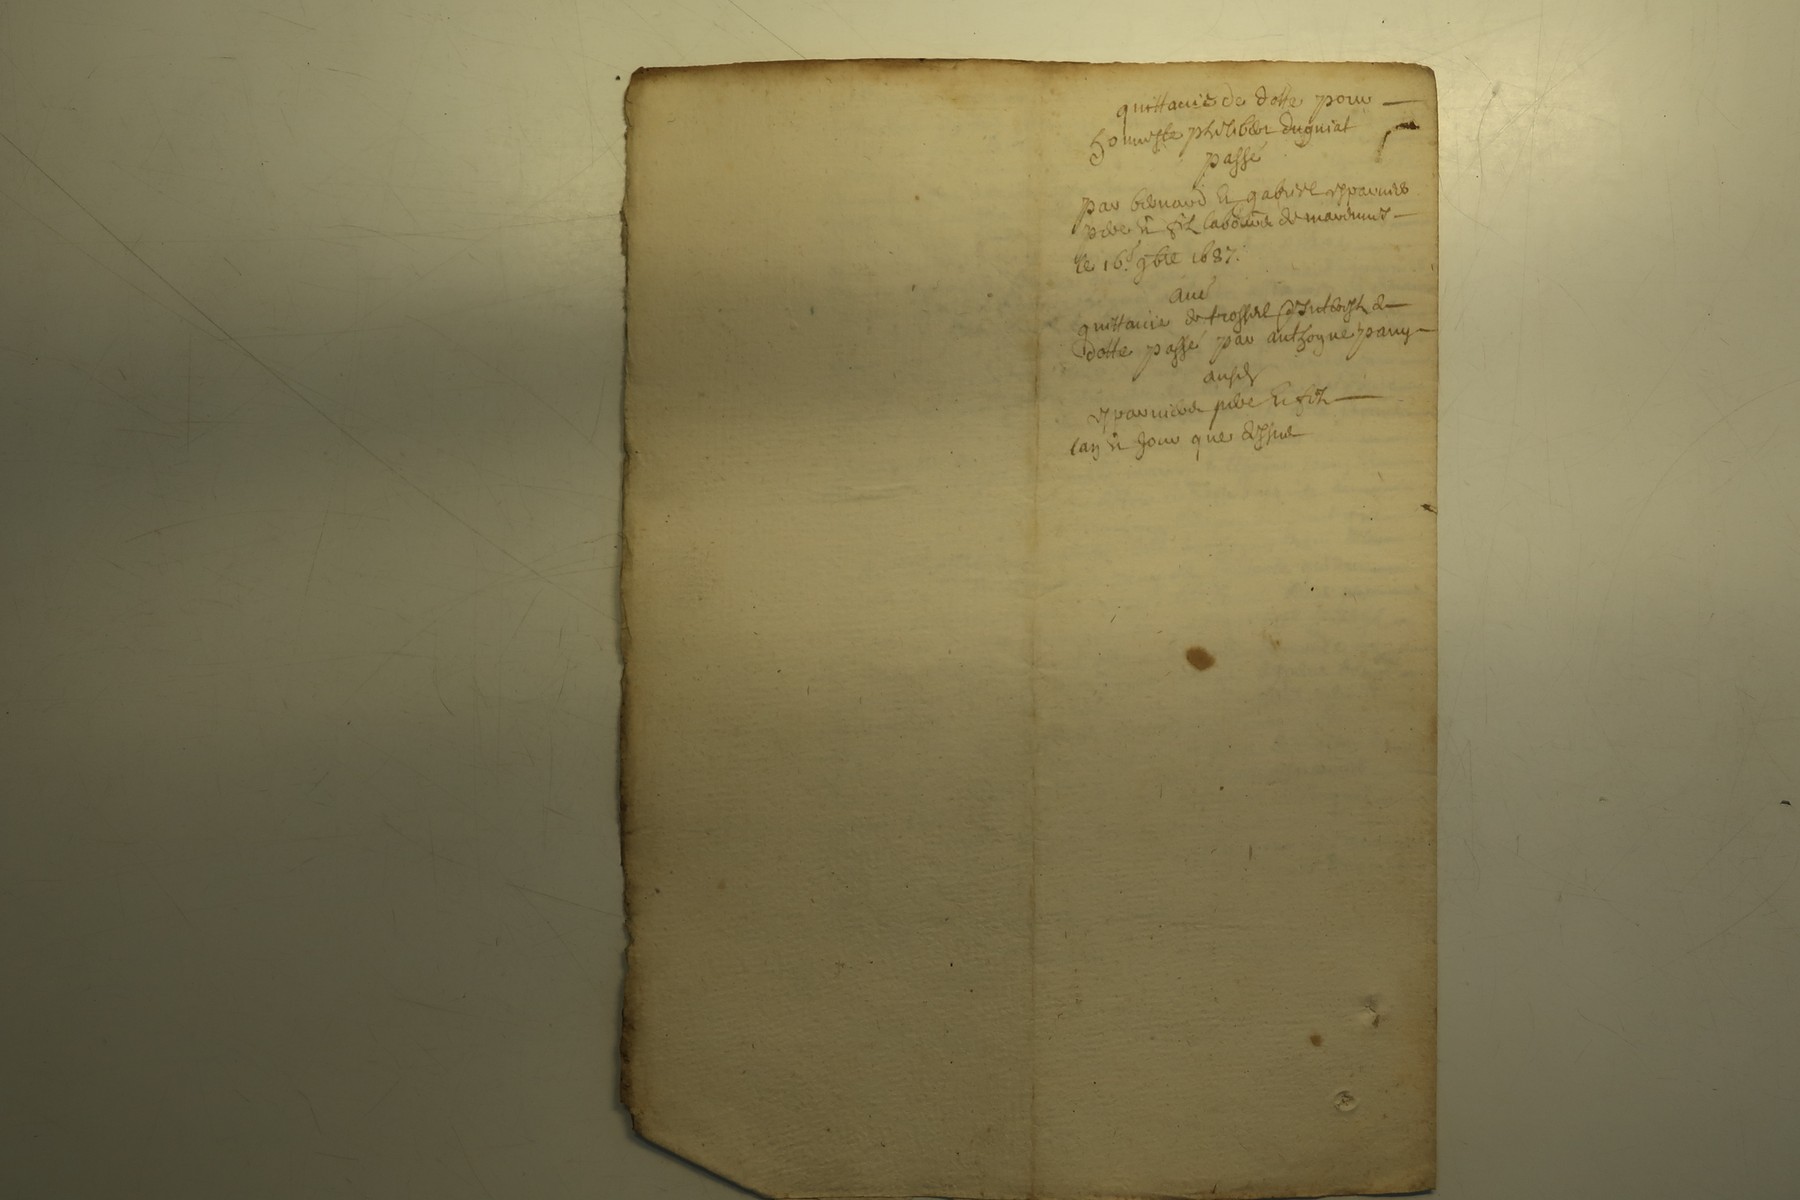 quittance de dotte pour
honneste philiber duguiat
passé
par bernard et gabriel esparnies
pere et filz laboure de
le 16e 9bre 1687.
avec
quittance de trossel de
dotte passé par anthoyne pany
ausd
esparnieres pere et filz
lan et jour que dessus